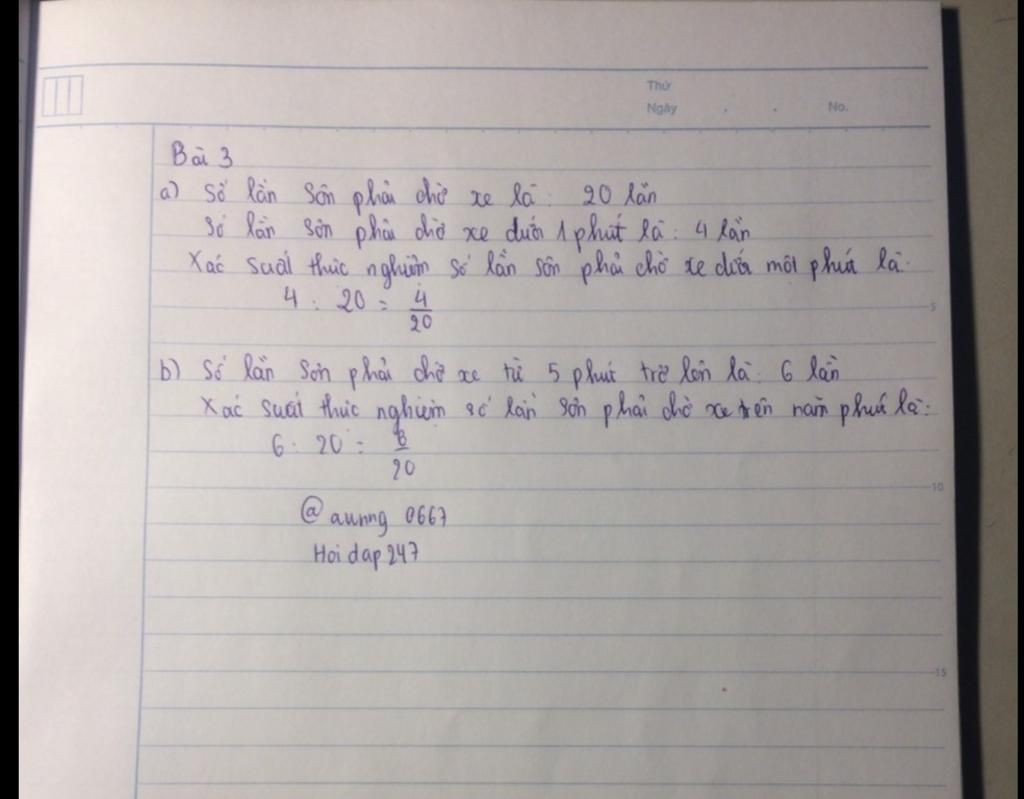 Thứ
Ngày . . No.
Bài 3
a) Số lần Sơn phải chờ xe là: 20 lần
Số lần Sơn phải chờ xe dưới 1 phút là: 4 lần
Xác suất thực nghiệm số lần Sơn phải chờ xe dưới một phút là:
4 : 20 = 4/20
5
b) Số lần Sơn phải chờ xe từ 5 phút trở lên là: 6 lần
Xác suất thực nghiệm số lần Sơn phải chờ xe trên năm phút là:
6 : 20 = 6/20
10
@aunng 0667
Hoidap247
15